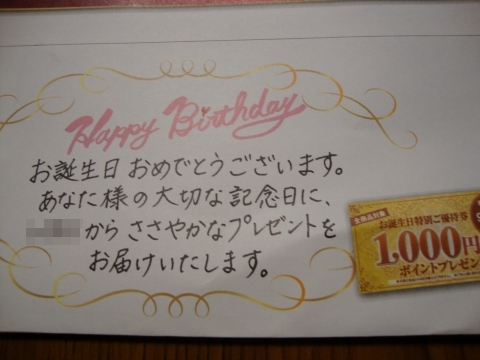 Happy Birthday
お誕生日 おめでとうございます。
あなた様の大切な記念日に、
から ささやかなプレゼントを
お届けいたします。
全商品対象
お誕生日特別ご優待券
1,000円
ポイントプレゼン